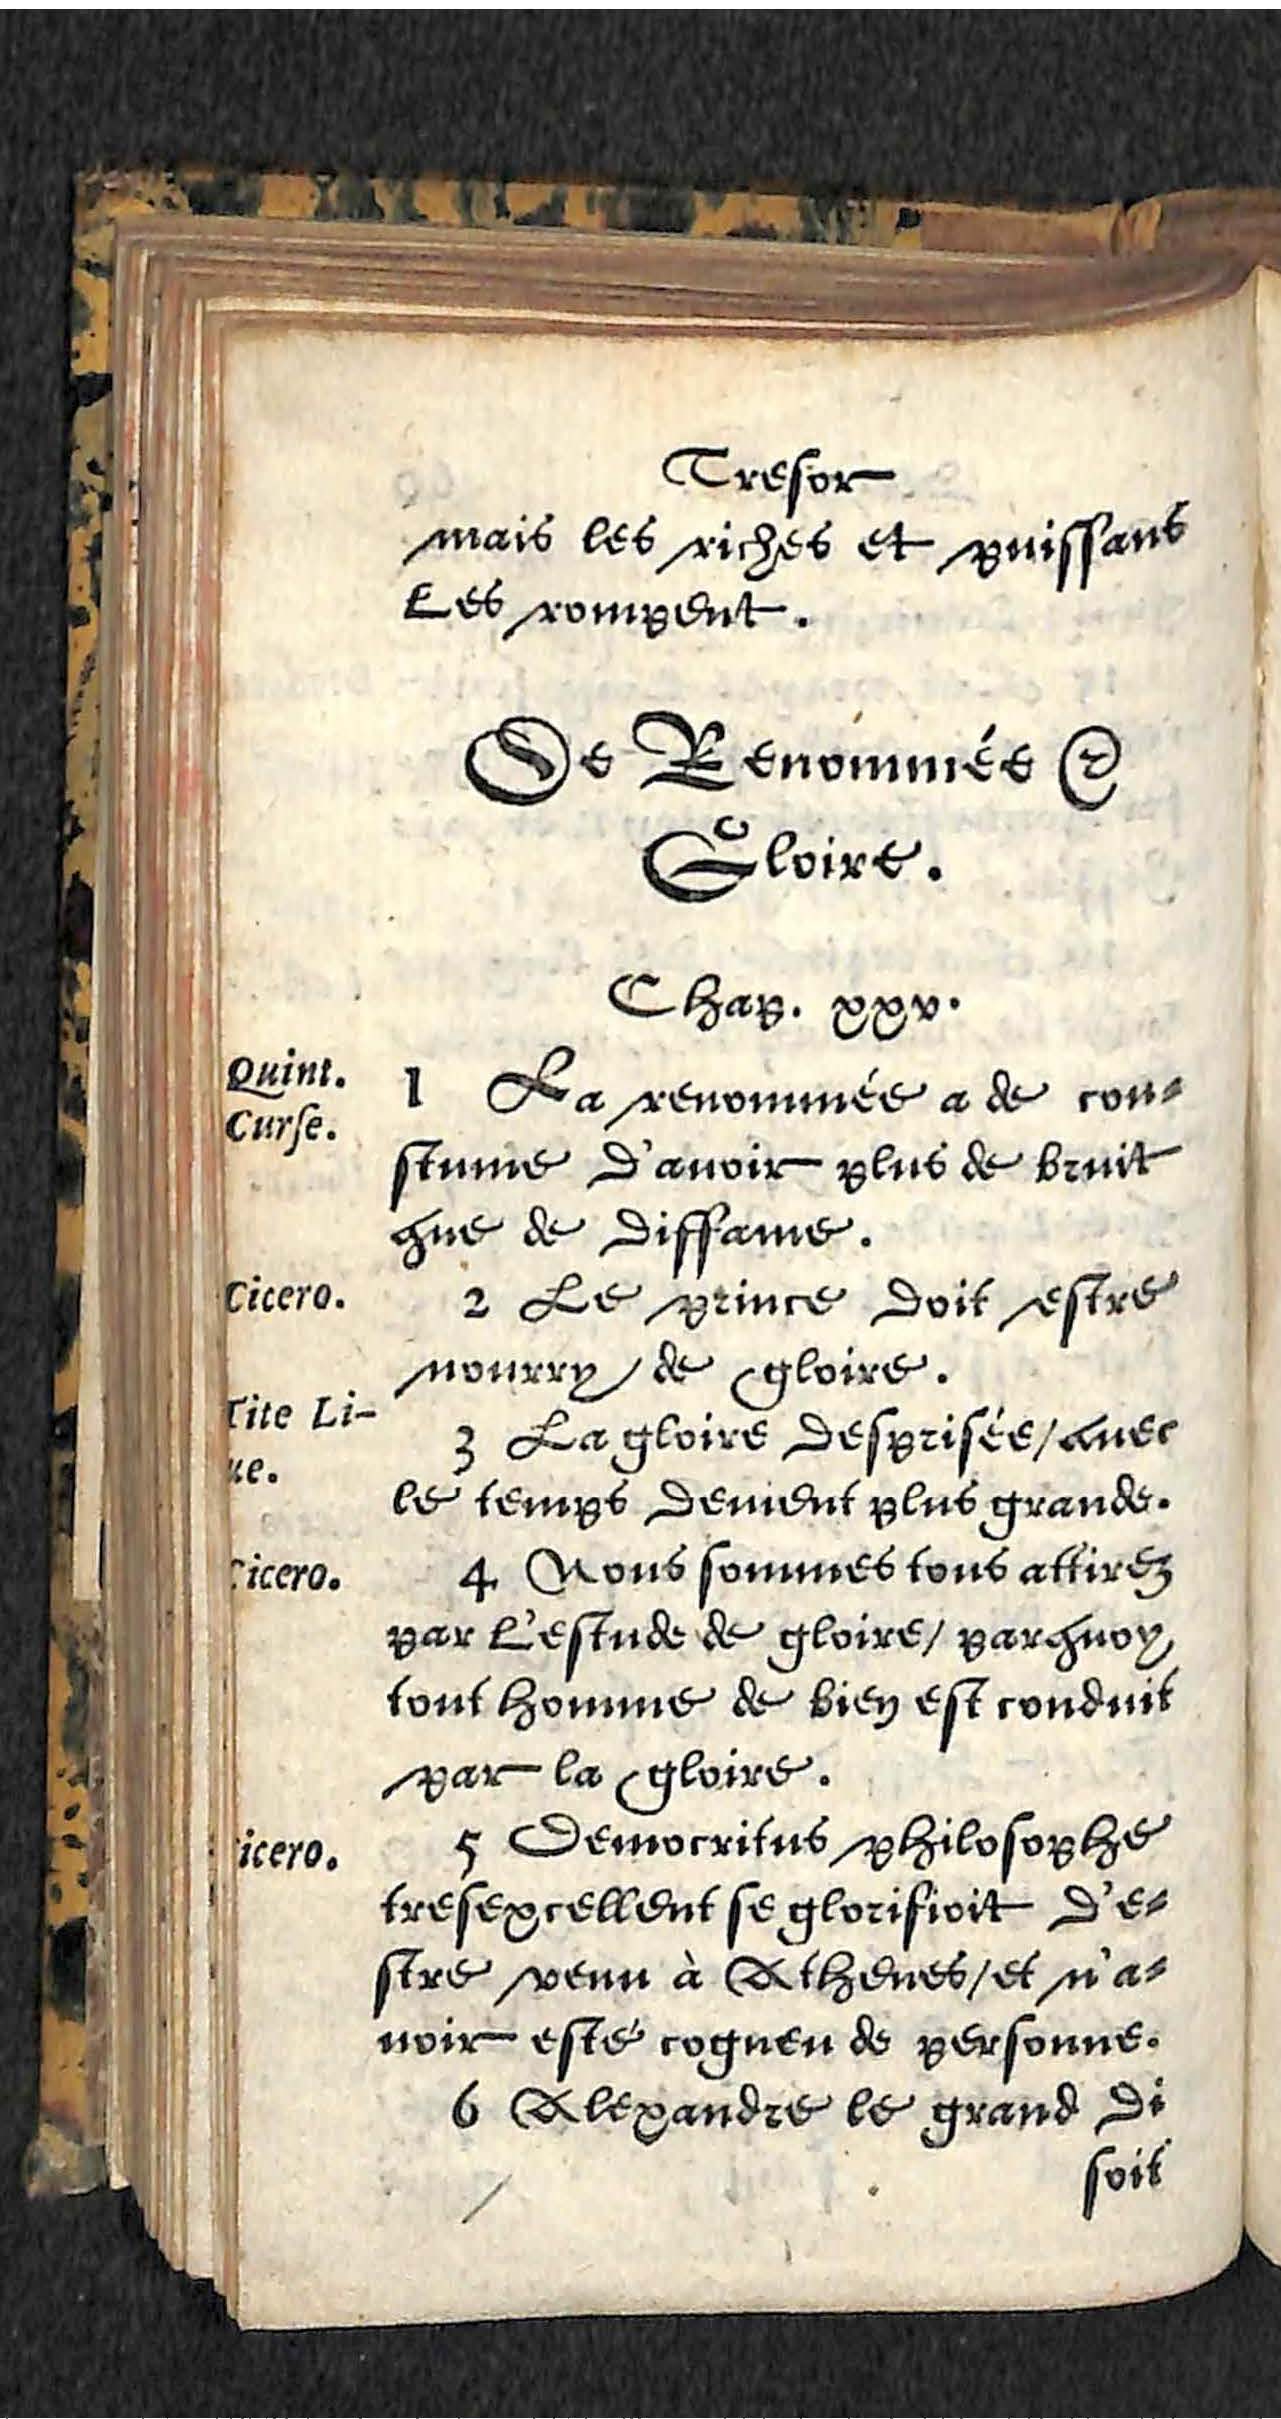 Tresor
mais les riches et puissans
Les rompent.
De Renommée &
Gloire.
Chap. xxv.
Quint.
Curse.
1 La renommée a de cou-
stume d'auoir plus de bruit
que de diffame.
Cicero.
2 Le prince doit estre
nourry de gloire.
Tite Li-
ue.
3 La gloire desprisée/auec
le temps deuient plus grande.
Cicero.
4 Nous sommes tous attirez
par L'estude de gloire/ parquoy
tout homme de bien est conduit
par la gloire.
icero.
5 Democritus philosophe
tresexcellent se glorifioit d'e-
stre venu à Athenes/et n'a-
uoir esté cogneu de personne.
6 Alexandre le grand di
soit